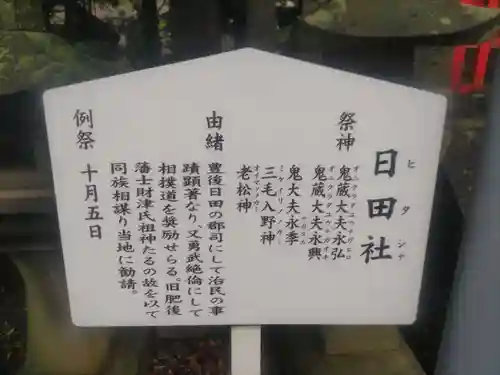 日田社
ヒタシヤ
祭神
鬼蔵大夫永弘
鬼蔵大夫永興
鬼大夫永季
三毛入野神
老松神
由緒
豊後日田の郡司にして治民の事
蹟顕著なり、又勇武絶倫にして
相撲道を奨励せらる。旧肥後
藩士財津氏祖神たるの故を以て
同族相謀り当地に勧請。
例祭 十月五日